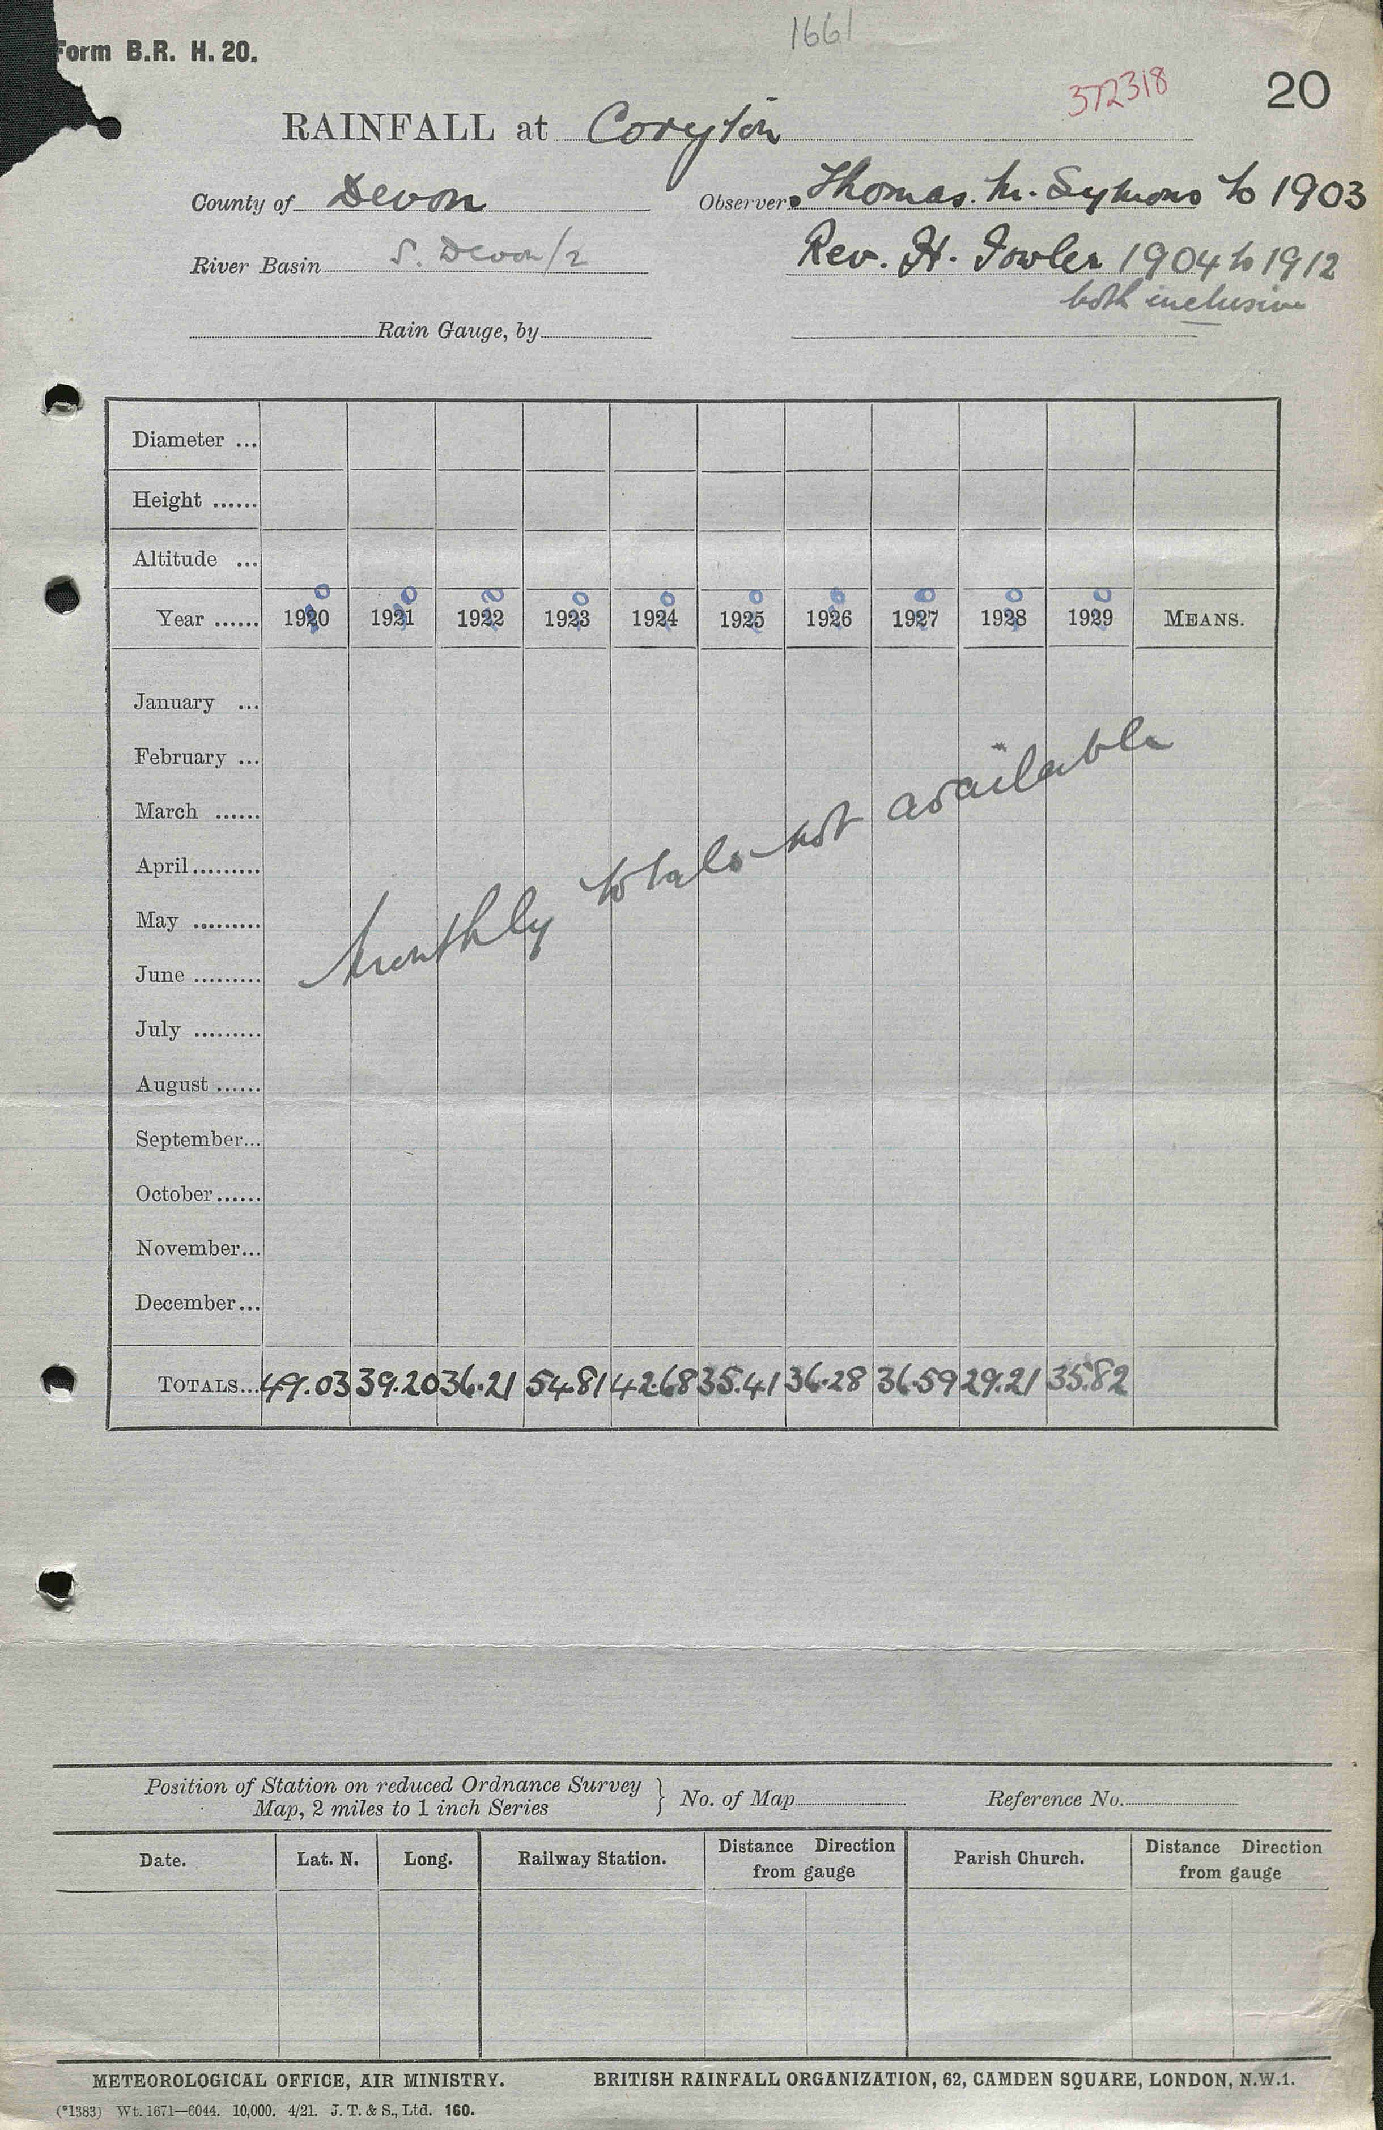 Form B.R. H. 20.
1661
372318
20
RAINFALL at Coryton
County of Devon
Observers Thomas. M. Symons to 1903
River Basin S. Devon/2
Rev. H. Fowler 1904 to 1912
both inclusive
Rain Gauge, by
Diameter ...
Height ......
Altitude ...
Year ...... 1920 1921 1922 1923 1924 1925 1926 1927 1928 1929 MEANS.
January ...
February ...
March ......
April.........
May .........
June .........
July .........
August ......
September...
October......
November...
December...
Monthly totals not available
TOTALS... 49.03 39.20 36.21 54.81 42.68 35.41 36.28 36.59 29.21 35.82
Position of Station on reduced Ordnance Survey
Map, 2 miles to 1 inch Series } No. of Map Reference No.
Date. Lat. N. Long. Railway Station. Distance Direction Parish Church. Distance Direction
from gauge from gauge
METEOROLOGICAL OFFICE, AIR MINISTRY. BRITISH RAINFALL ORGANIZATION, 62, CAMDEN SQUARE, LONDON, N.W.1.
(*1383) Wt. 1671—6044. 10,000. 4/21. J. T. & S., Ltd. 160.